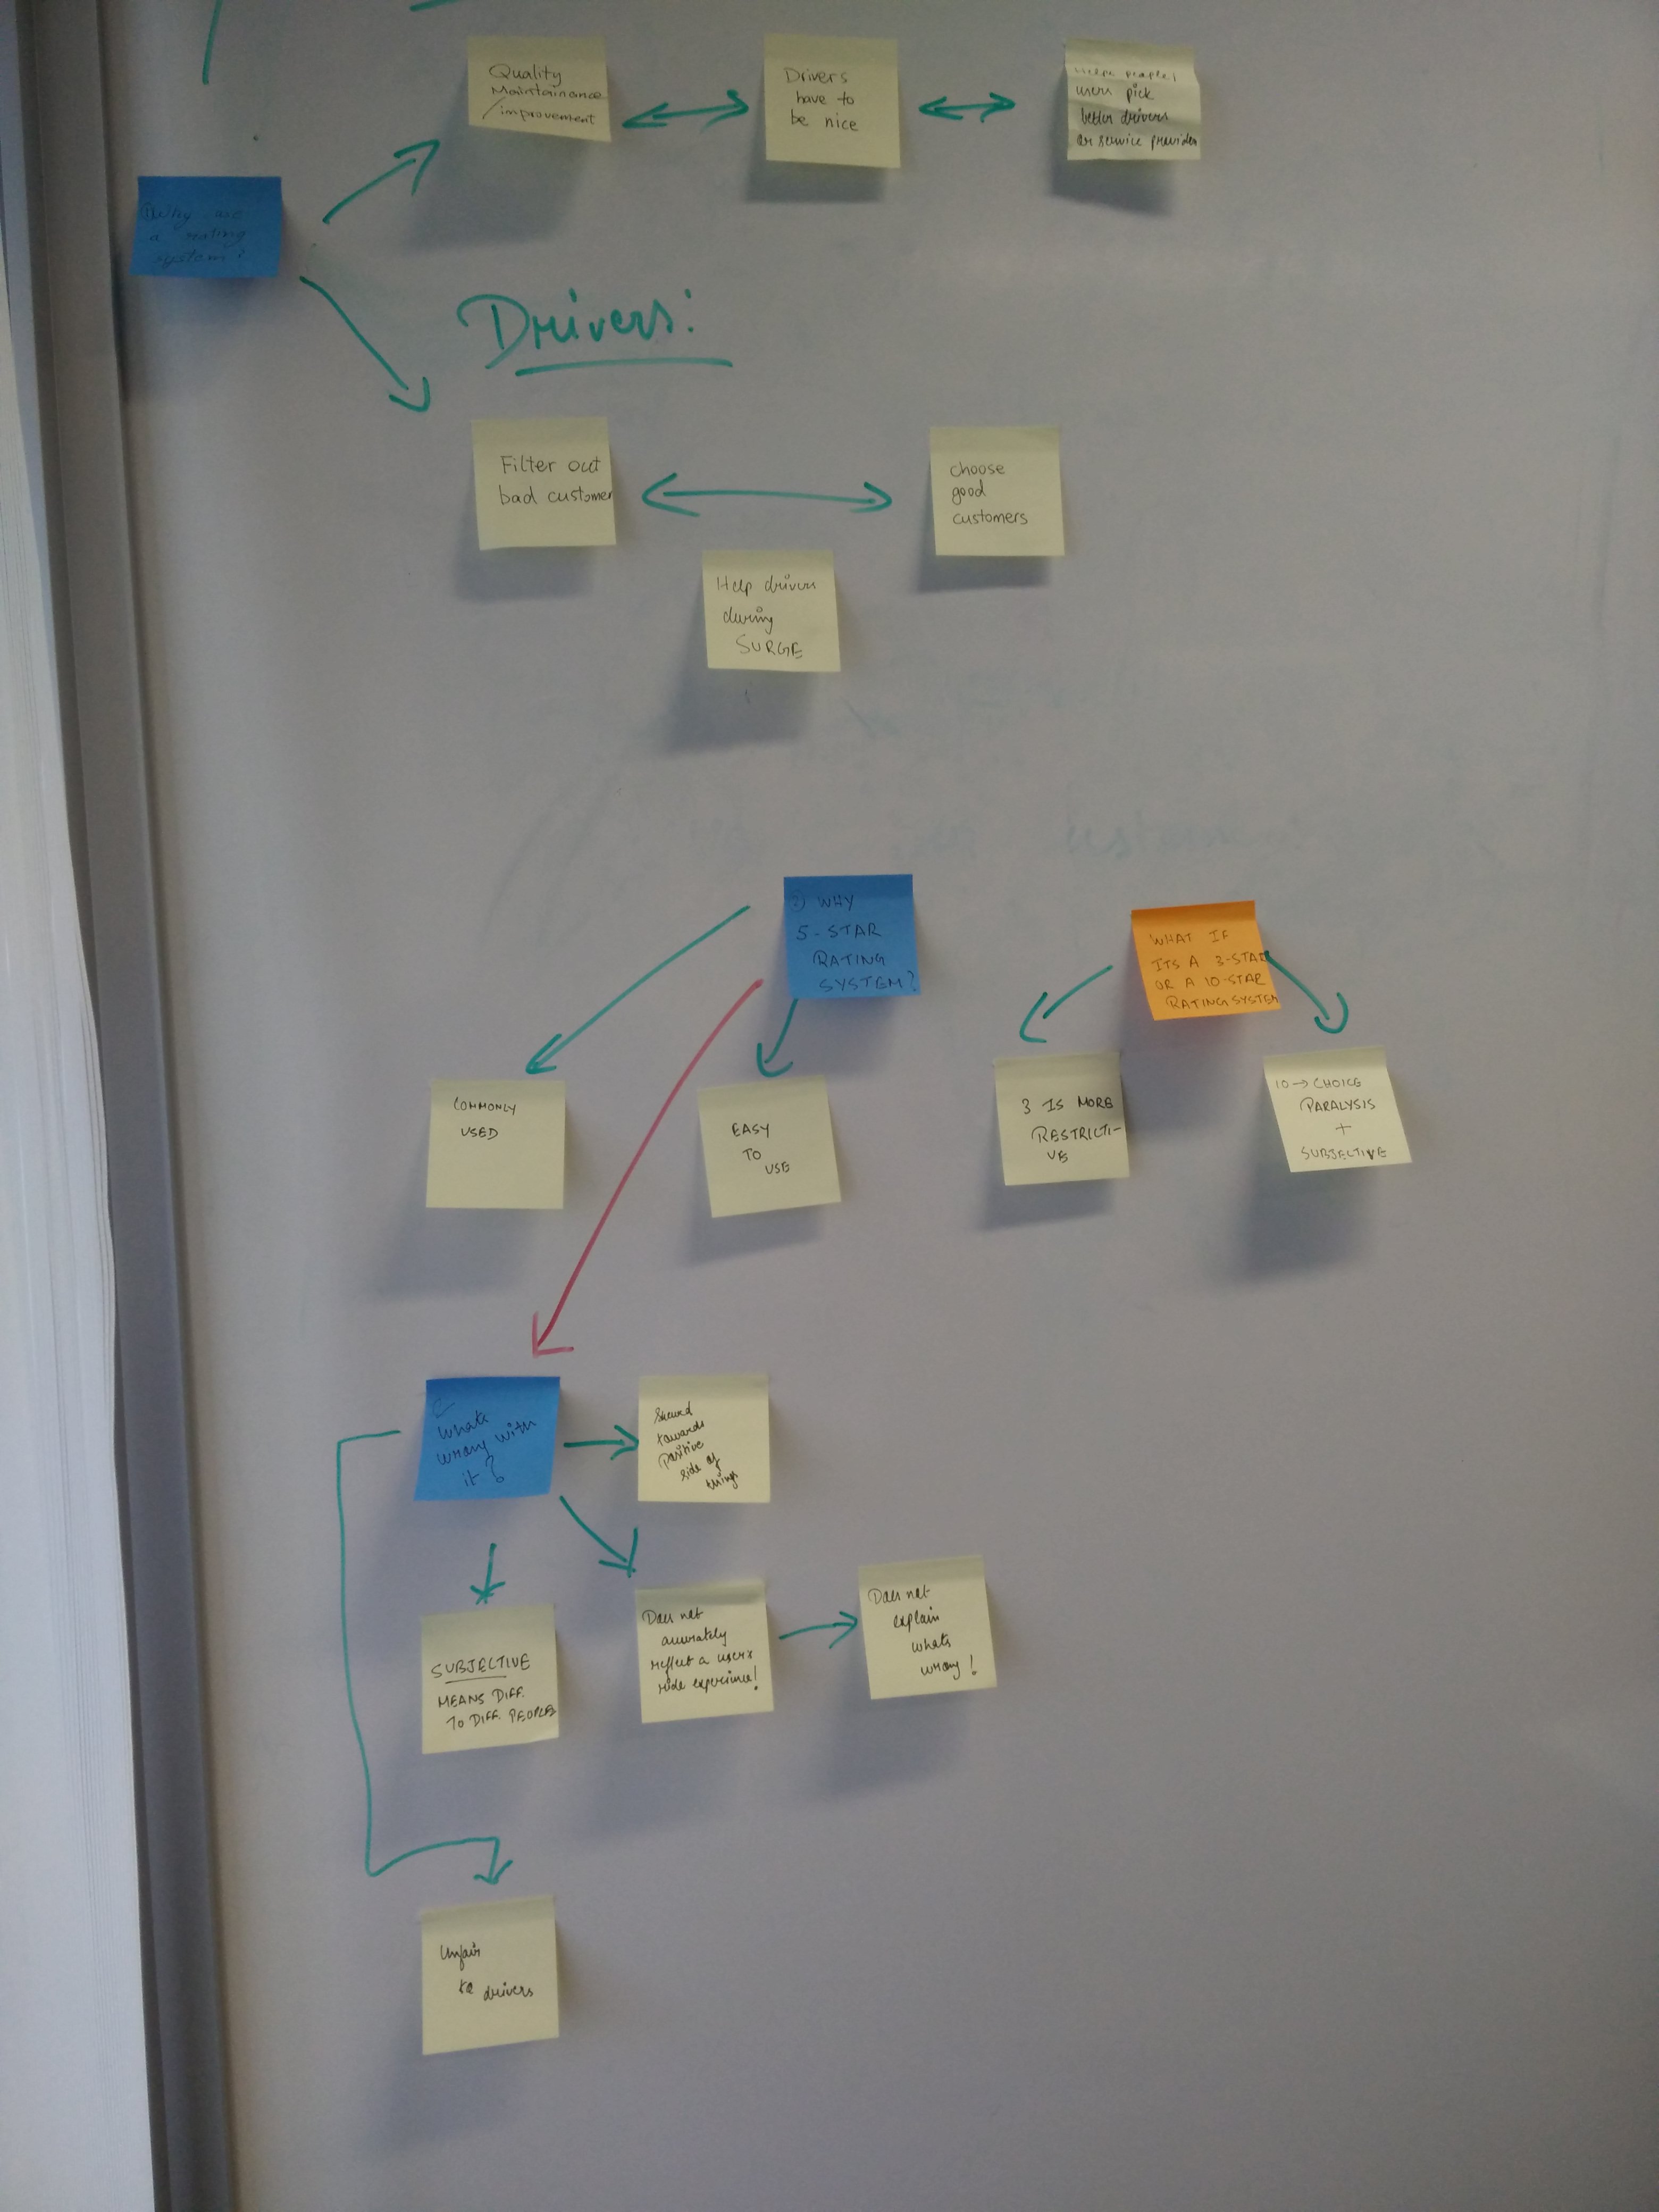 Quality
Maintainance
/improvement
Drivers
have to
be nice
people/
users pick
better drivers
or service provider
① Why use
a rating
system?
Drivers:
Filter out
bad customer
choose
good
customers
Help drivers
during
SURGE
② WHY
5-STAR
RATING
SYSTEM?
WHAT IF
ITS A 3-STAR
OR A 10-STAR
RATING SYSTEM
COMMONLY
USED
EASY
TO
USE
3 IS MORE
RESTRICTI-
VE
10→ CHOICE
PARALYSIS
+
SUBJECTIVE
Whats
wrong with
it?
Skewed
towards
Positive
side of
things
SUBJECTIVE
MEANS DIFF.
TO DIFF. PEOPLE
Does not
accurately
reflect a user's
ride experience!
Does not
explain
whats
wrong!
Unfair
to drivers